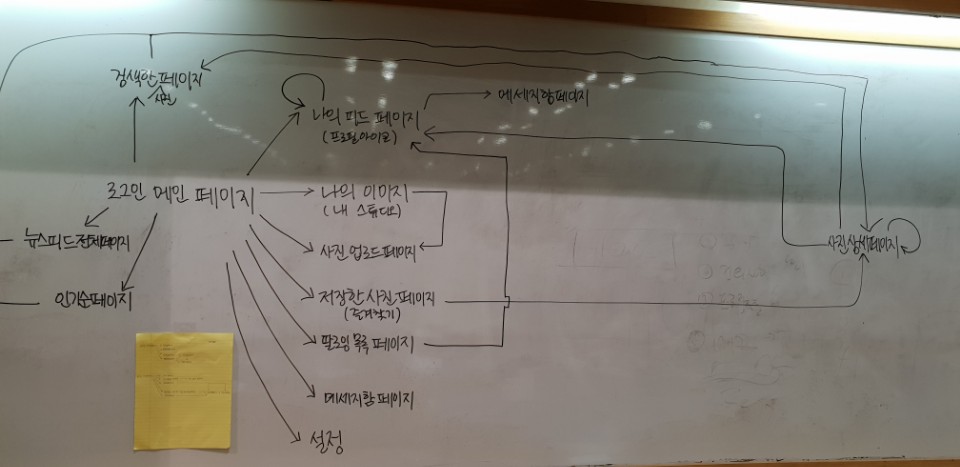 검색한 페이지
사진
나의 피드 페이지
(프로필아이콘)
메세지함페이지
로그인 메인 페이지
나의 이미지
(내 스튜디오)
뉴스피드전체페이지
사진 업로드페이지
사진상세페이지
인기순페이지
저장한 사진 페이지
(즐겨찾기)
팔로잉 목록 페이지
메세지함 페이지
설정